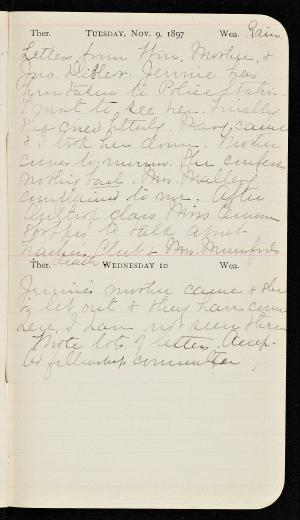 Ther. TUESDAY, NOV. 9, 1897 Wea. Rain
Letters from Win, Mother, &
Jno. Dibler. Jennie has
been taken to Police Station.
I went to see her. Finally
she cried bitterly. Mary came
& I took her down. Mother
comes to-morrow. She confesses
nothing bad. Mrs. Mallery
complained to me. After
class Miss
stopped to talk about
Club & Mrs. Mumford's
death
Ther. WEDNESDAY 10 Wea.
Jennie's mother came & she
is let out & they have come
here, I have not seen them
Wrote lots of letters. Accep-
ted fellowship committee.